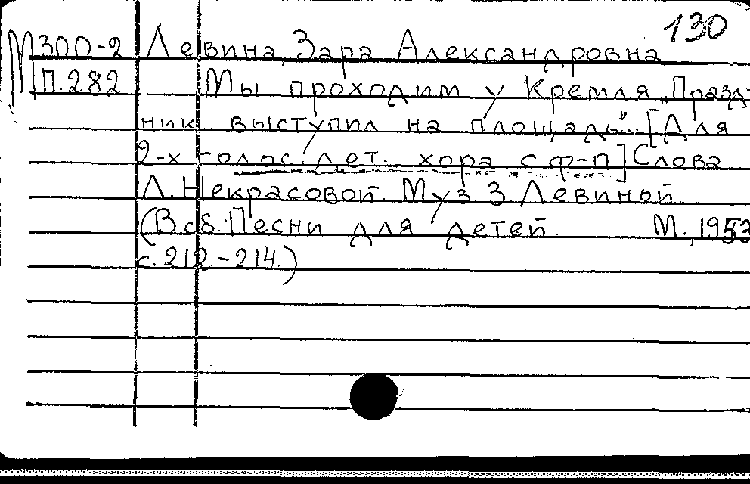 130
М300-2 Левина, Зара Александровна
П.282 Мы проходим у Кремля „Празд-
ник выступил на площадь". [Для
2-х голос. дет. хора с ф-п] Слова
Л. Некрасовой. Муз З. Левиной.
(В сб. Песни для детей М., 1953
с. 212-214.)